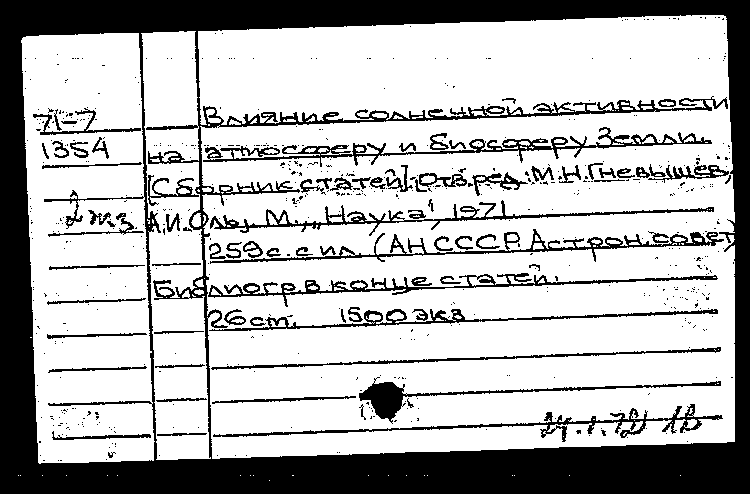 71-7 Влияние солнечной активности
1354 на атмосферу и биосферу Земли.
[Сборник статей]. Отв. ред.: М.Н. Гневышев,
2 экз А.И. Оль. М., „Наука", 1971.
259 с. с ил. (АН СССР. Астрон. совет)
Библиогр. в конце статей.
26 ст. 1500 экз
24.1.72